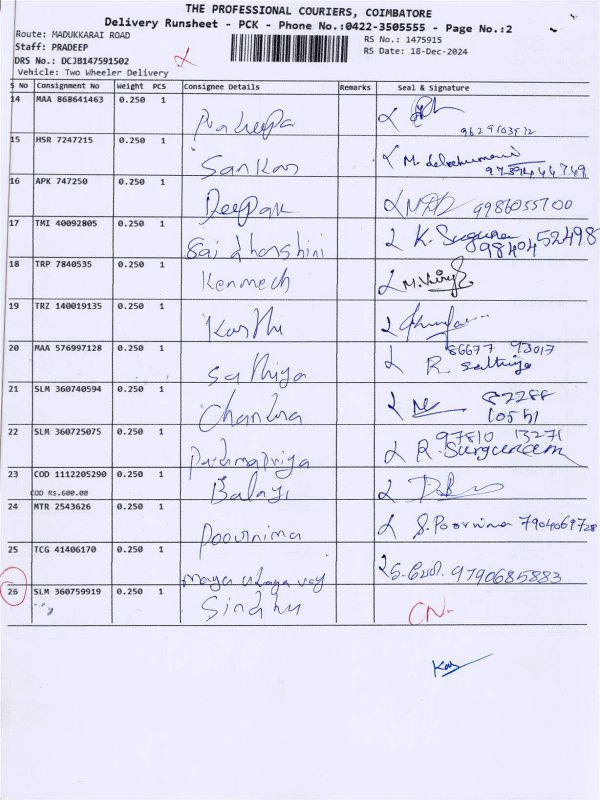 THE PROFESSIONAL COURIERS, COIMBATORE
Delivery Runsheet - PCK - Phone No.:0422-3505555 - Page No.:2
Route: MADUKKARAI ROAD
RS No.: 1475915
Staff: PRADEEP
RS Date: 18-Dec-2024
DRS No.: DCJB147591502
Vehicle: Two Wheeler Delivery
S No Consignment No Weight PCS Consignee Details Remarks Seal & Signature
14 MAA 868641463 0.250 1
15 HSR 7247215 0.250 1
Sankar
16 APK 747250 0.250 1
Deepak 9986055700
17 TMI 40092805 0.250 1
Sai dharshini K. Suguna
9840452498
18 TRP 7840535 0.250 1
Kenmech
19 TRZ 140019135 0.250 1
Karthi
20 MAA 576997128 0.250 1
86677 93017
Sathiya R. Sathiya
21 SLM 360740594 0.250 1
Chandra
82288
10551
22 SLM 360725075 0.250 1
97810 13271
Padmapriya
23 COD 1112205290 0.250 1
Balaji
COD RS.600.00
24 MTR 2543626 0.250 1
Poornima S. Poornima 7904069728
25 TCG 41406170 0.250 1
9790685883
26 SLM 360759919 0.250 1
Sindhu
CN.